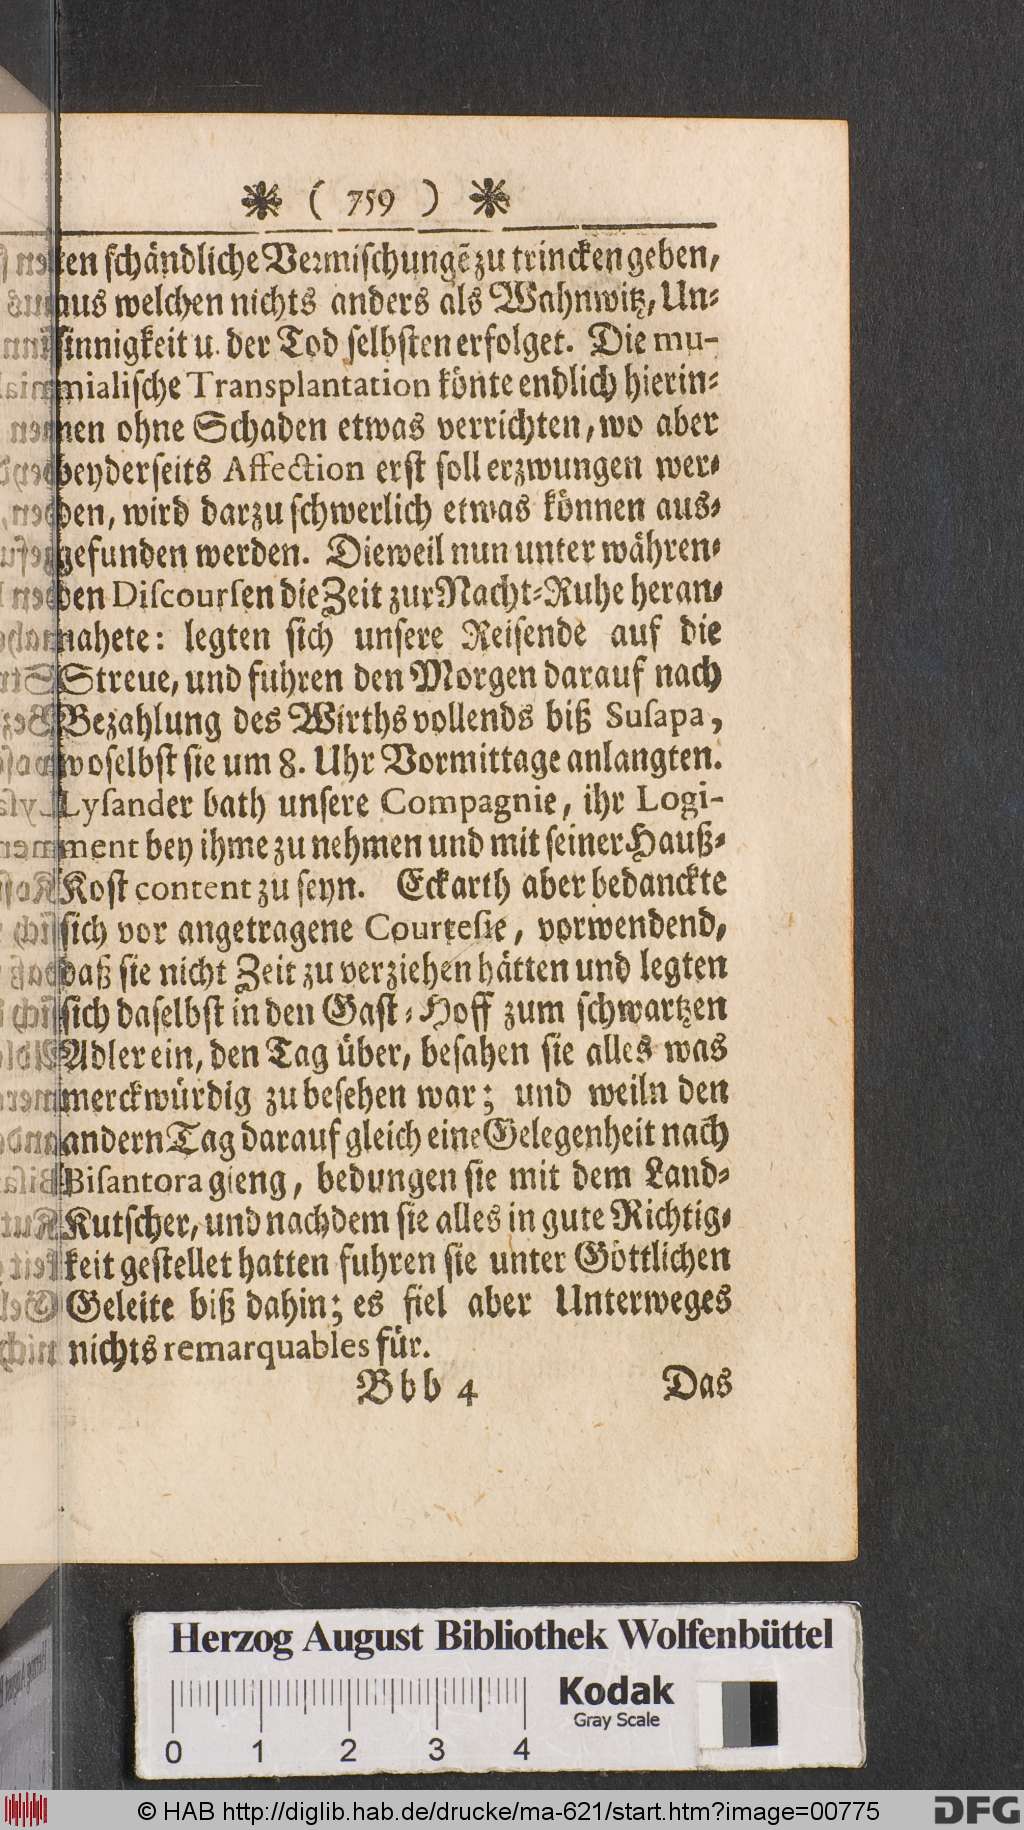 ❋ ( 759 ) ❋
ten ſchändliche Vermiſchungē zu trincken geben,
aus welchen nichts anders als Wahnwitz, Un-
ſinnigkeit u. der Tod ſelbſten erfolget. Die mu-
mialiſche Transplantation könte endlich hierin-
nen ohne Schaden etwas verrichten, wo aber
beyderſeits Affection erſt ſoll erzwungen wer-
den, wird darzu ſchwerlich etwas können aus-
gefunden werden. Dieweil nun unter währen-
den Diſcourſen die Zeit zur Nacht-Ruhe heran-
nahete: legten ſich unſere Reiſende auf die
Streue, und fuhren den Morgen darauf nach
Bezahlung des Wirths vollends biß Suſapa,
woſelbſt ſie um 8. Uhr Vormittage anlangten.
Lyſander bath unſere Compagnie, ihr Logi-
ment bey ihme zu nehmen und mit ſeiner Hauß-
Koſt content zu ſeyn. Eckarth aber bedanckte
ſich vor angetragene Courteſie, vorwendend,
daß ſie nicht Zeit zu verziehen hätten und legten
ſich daſelbſt in den Gaſt-Hoff zum ſchwartzen
Adler ein, den Tag über, beſahen ſie alles was
merckwürdig zu beſehen war; und weiln den
andern Tag darauf gleich eine Gelegenheit nach
Biſantora gieng, bedungen ſie mit dem Land-
Kutſcher, und nachdem ſie alles in gute Richtig-
keit geſtellet hatten fuhren ſie unter Göttlichen
Geleite biß dahin; es fiel aber Unterweges
nichts remarquables für.
Bbb 4 Das
Herzog August Bibliothek Wolfenbüttel
Kodak
Gray Scale
0 1 2 3 4
© HAB http://diglib.hab.de/drucke/ma-621/start.htm?image=00775
DFG